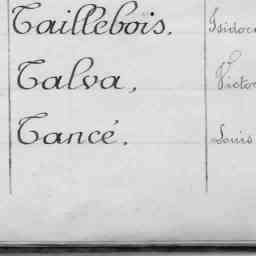 Taillebois, Isidor
Talva, Victo
Tancé. Louis